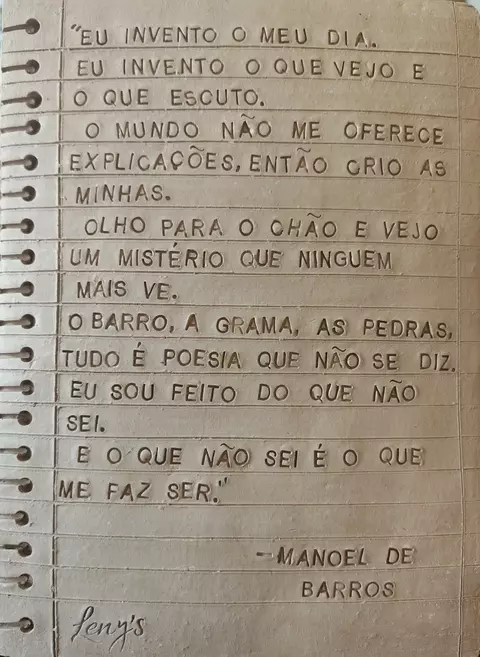 "EU INVENTO O MEU DIA.
EU INVENTO O QUE VEJO E
O QUE ESCUTO.
O MUNDO NÃO ME OFERECE
EXPLICAÇÕES, ENTÃO CRIO AS
MINHAS.
OLHO PARA O CHÃO E VEJO
UM MISTÉRIO QUE NINGUEM
MAIS VE.
O BARRO, A GRAMA, AS PEDRAS,
TUDO É POESIA QUE NÃO SE DIZ.
EU SOU FEITO DO QUE NÃO
SEI.
E O QUE NÃO SEI É O QUE
ME FAZ SER."
-MANOEL DE
BARROS
Leny's